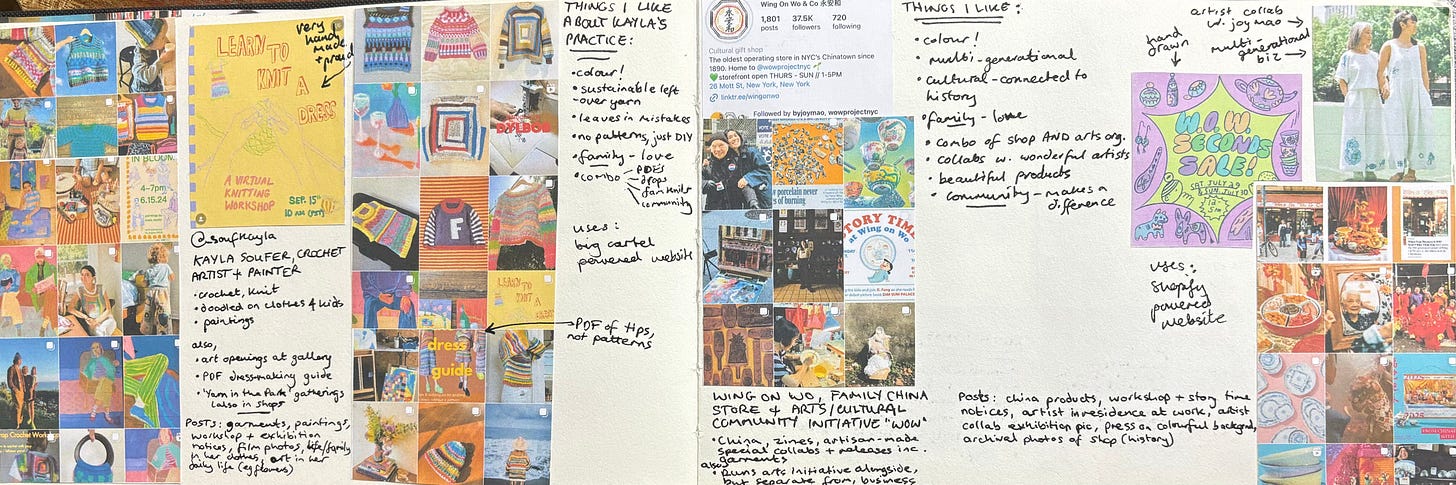 very
hand
made
+ proud
LEARN TO
KNIT
A
DRESS
A VIRTUAL
KNITTING
WORKSHOP
SEP. 15th
10 AM (PST)
IN BLOOM
4-7pm
6.15.24
@soufkayla
KAYLA SOUFER, CROCHET
ARTIST + PAINTER
• crochet, knit
• doodled on clothes 4 kids
• paintings
also,
• art openings at gallery
• PDF dressmaking guide
• 'Yarn in the Park' gatherings
(also in shops)
POSTS: garments, paintings,
workshop + exhibition
notices, film photos, life/family
in her clothes, art in her
daily life (eg flowers)
F
LEARN TO
KNIT A
dress
guide
THINGS I LIKE
ABOUT KAYLA'S
PRACTICE:
• colour!
• sustainable left
-over yarn
• leaves in mistakes
• no patterns, just DIY
• family - love
• combo
PDFs
drops
fam knits
community
uses:
big cartel
powered website
PDF of tips,
not patterns
Wing On Wo & Co 永安和
1,801 37.5K 720
posts followers following
Cultural gift shop
The oldest operating store in NYC's Chinatown since
1890. Home to @wowprojectnyc
storefront open THURS - SUN // 1-5PM
26 Mott St, New York, New York
linktr.ee/wingonwo
Followed by byjoymao, wowprojectnyc
porcelain never
of burning
STORY TIME
at Wing on Wo
WING ON WO, FAMILY CHINA
STORE & ARTS/CULTURAL
COMMUNITY INITIATIVE "WOW"
• China, zines, artisan-made
special collabs + releases inc.
garments
also
• Runs arts initiative alongside,
but separate from, business
THINGS I LIKE:
• colour!
• multi-generational
• cultural-connected to
history
• family - love
• combo of shop AND arts org.
• collabs w. wonderful artists
• beautiful products
• community - makes a
difference
hand
drawn
artist collab
w. joy mao
multi-
generational
biz
W.O.W.
SECONDS
SALE!
SAT JULY 29
& SUN JULY 30
12-
5PM
uses:
shopify
powered
website
Posts: china products, workshop + story time
notices, artist in residence at work, artist
collab exhibition pic, press on colourful backgrnd,
archival photos of shop (history)
2025